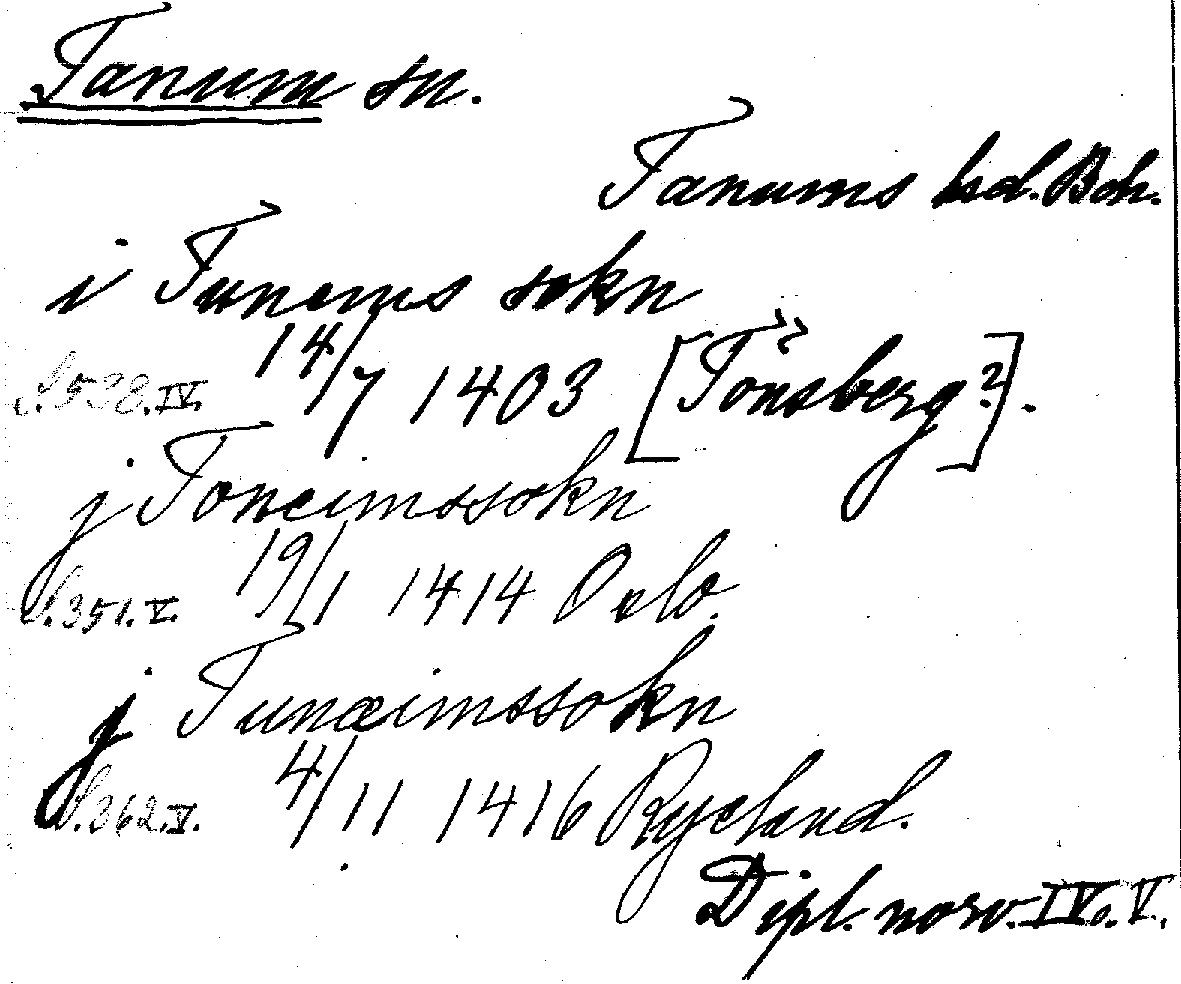 Tanum sn.
Tanums hd. Boh.
i Tunems sokn
S. 538. IV. 14/7 1403 [Tönsberg?].
j Toneimssokn
S. 351. V. 19/1 1414 Oslo.
j Tunæimssokn
S. 362. V. 4/11 1416 Rycland.
Dipl. norv. IV o. V.